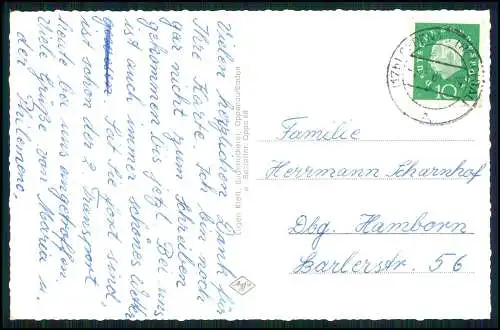 Vielen herzlichen Dank für
Ihre Karte. Ich bin noch
gar nicht zum Schreiben
gekommen bis jetzt. Bei uns
ist auch immer schönes Wetter
ist schon der 2. Transport
Seit Sie fort sind,
heute bei uns eingetroffen.
Viele Grüße von Maria u.
der
Eugen Krell, Buchdruckerei, Oppenau/Baden
Bestellnr. Oppo 68
Agfa
DEUTSCHE BUNDESPOST
10
Familie
Herrmann Scharnhof
Dbg. Hamborn
Barlerstr. 56